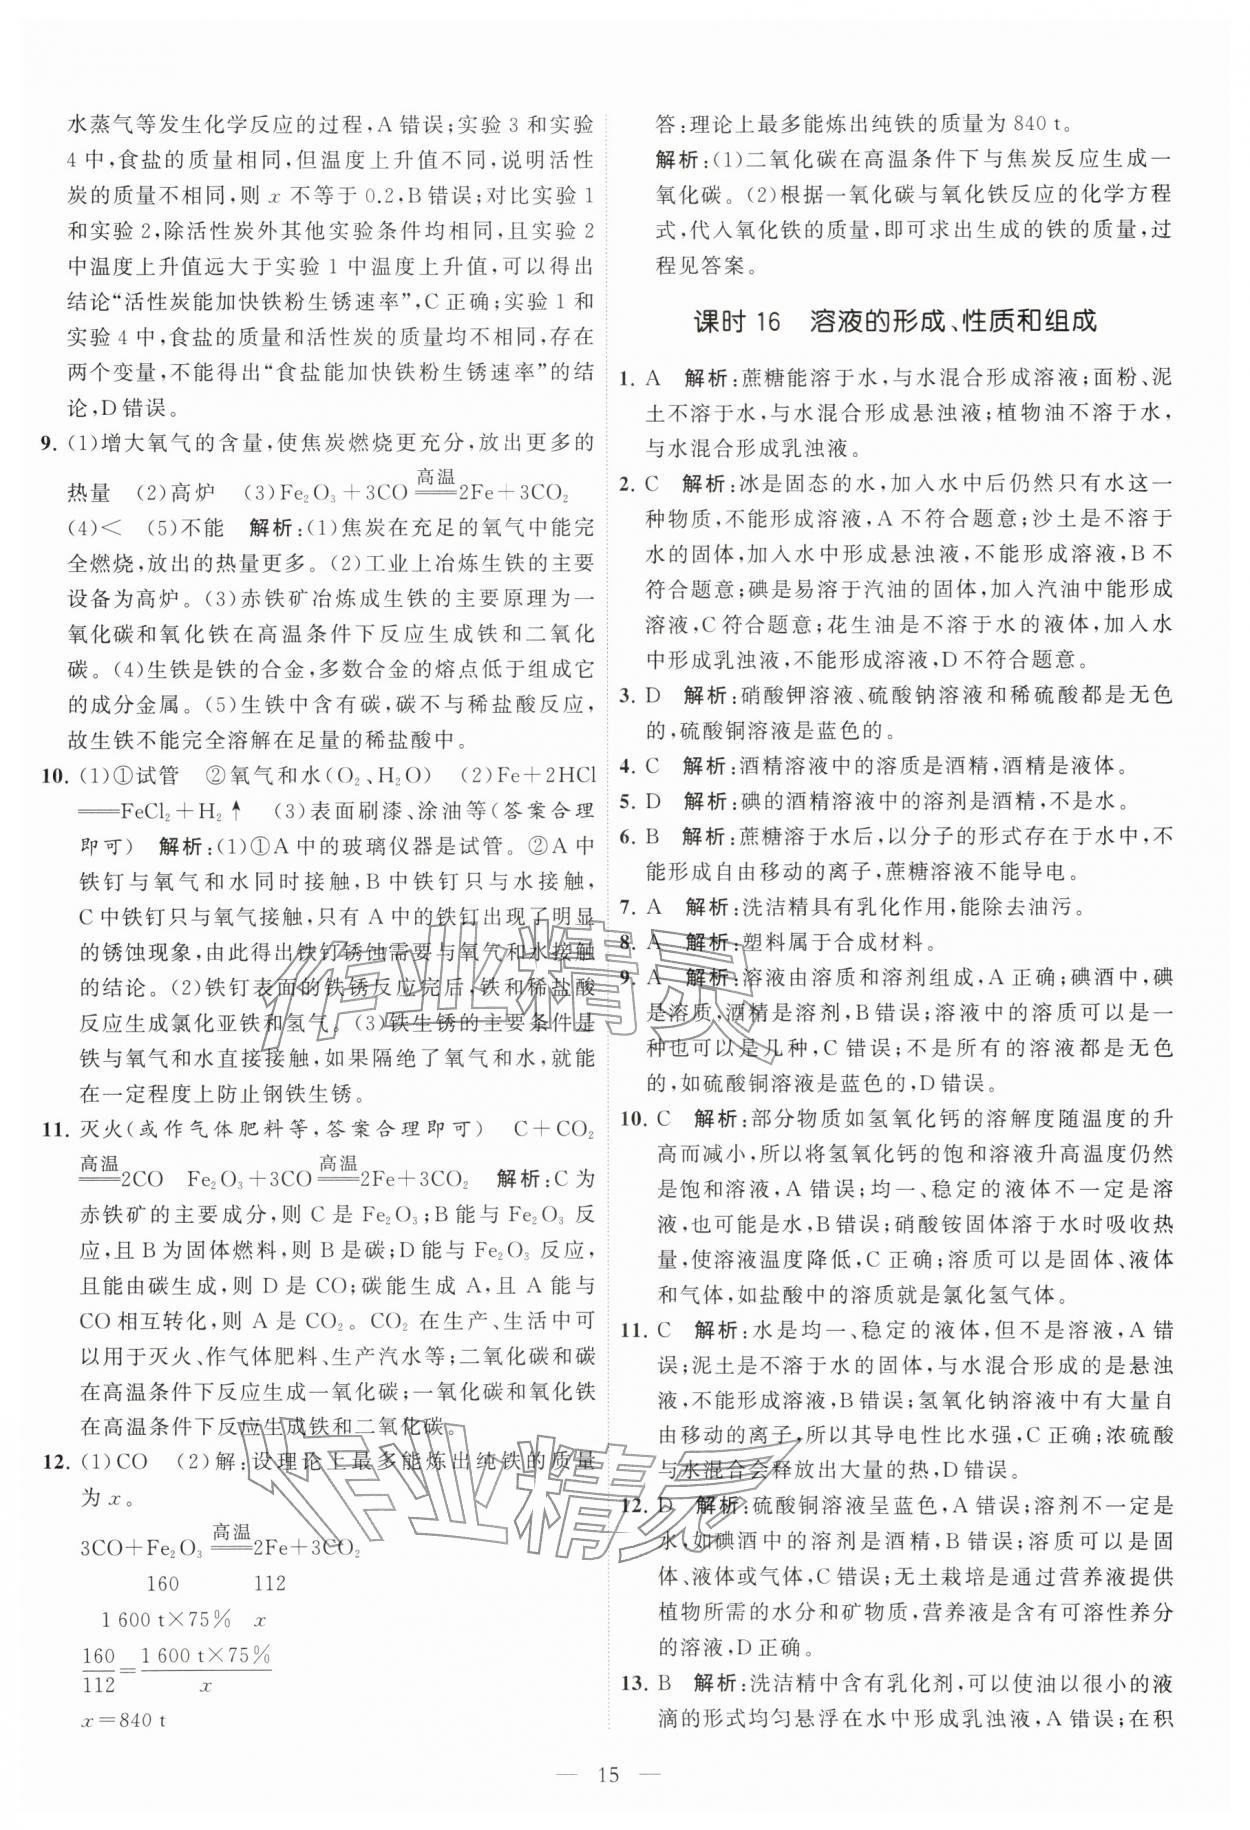 水蒸气等发生化学反应的过程,A错误;实验3和实验
4中,食盐的质量相同,但温度上升值不同,说明活性
炭的质量不相同,则 x 不等于0.2,B错误;对比实验1
和实验2,除活性炭外其他实验条件均相同,且实验2
中温度上升值远大于实验1中温度上升值,可以得出
结论“活性炭能加快铁粉生锈速率”,C正确;实验1和
实验4中,食盐的质量和活性炭的质量均不相同,存在
两个变量,不能得出“食盐能加快铁粉生锈速率”的结
论,D错误。
9. (1)增大氧气的含量,使焦炭燃烧更充分,放出更多的
热量 (2)高炉 (3)Fe₂O₃+3CO 高温 2Fe+3CO₂
(4)< (5)不能 解析:(1)焦炭在充足的氧气中能完
全燃烧,放出的热量更多。(2)工业上冶炼生铁的主要
设备为高炉。(3)赤铁矿冶炼成生铁的主要原理为一
氧化碳和氧化铁在高温条件下反应生成铁和二氧化
碳。(4)生铁是铁的合金,多数合金的熔点低于组成它
的成分金属。(5)生铁中含有碳,碳不与稀盐酸反应,
故生铁不能完全溶解在足量的稀盐酸中。
10. (1)①试管 ②氧气和水(O₂、H₂O) (2)Fe+2HCl
══FeCl₂+H₂↑ (3)表面刷漆、涂油等(答案合理
即可) 解析:(1)①A中的玻璃仪器是试管。②A中
铁钉与氧气和水同时接触,B中铁钉只与水接触,
C中铁钉只与氧气接触,只有A中的铁钉出现了明显
的锈蚀现象,由此得出铁钉锈蚀需要与氧气和水接触
的结论。(2)铁钉表面的铁锈反应完后,铁和稀盐酸
反应生成氯化亚铁和氢气。(3)铁生锈的主要条件是
铁与氧气和水直接接触,如果隔绝了氧气和水,就能
在一定程度上防止钢铁生锈。
11. 灭火(或作气体肥料等,答案合理即可) C+CO₂
高温 2CO Fe₂O₃+3CO 高温 2Fe+3CO₂ 解析:C为
赤铁矿的主要成分,则C是Fe₂O₃;B能与Fe₂O₃反
应,且B为固体燃料,则B是碳;D能与Fe₂O₃反应,
且能由碳生成,则D是CO;碳能生成A,且A能与
CO相互转化,则A是CO₂。CO₂在生产、生活中可
以用于灭火、作气体肥料、生产汽水等;二氧化碳和碳
在高温条件下反应生成一氧化碳;一氧化碳和氧化铁
在高温条件下反应生成铁和二氧化碳。
12. (1)CO (2)解:设理论上最多能炼出纯铁的质量
为 x。
3CO+Fe₂O₃ 高温 2Fe+3CO₂
160 112
1 600 t×75% x
160/112=1 600 t×75%/x
x=840 t
答:理论上最多能炼出纯铁的质量为840 t。
解析:(1)二氧化碳在高温条件下与焦炭反应生成一
氧化碳。(2)根据一氧化碳与氧化铁反应的化学方程
式,代入氧化铁的质量,即可求出生成的铁的质量,过
程见答案。
课时16 溶液的形成、性质和组成
1. A 解析:蔗糖能溶于水,与水混合形成溶液;面粉、泥
土不溶于水,与水混合形成悬浊液;植物油不溶于水,
与水混合形成乳浊液。
2. C 解析:冰是固态的水,加入水中后仍然只有水这一
种物质,不能形成溶液,A不符合题意;沙土是不溶于
水的固体,加入水中形成悬浊液,不能形成溶液,B不
符合题意;碘是易溶于汽油的固体,加入汽油中能形成
溶液,C符合题意;花生油是不溶于水的液体,加入水
中形成乳浊液,不能形成溶液,D不符合题意。
3. D 解析:硝酸钾溶液、硫酸钠溶液和稀硫酸都是无色
的,硫酸铜溶液是蓝色的。
4. C 解析:酒精溶液中的溶质是酒精,酒精是液体。
5. D 解析:碘的酒精溶液中的溶剂是酒精,不是水。
6. B 解析:蔗糖溶于水后,以分子的形式存在于水中,不
能形成自由移动的离子,蔗糖溶液不能导电。
7. A 解析:洗洁精具有乳化作用,能除去油污。
8. A 解析:塑料属于合成材料。
9. A 解析:溶液由溶质和溶剂组成,A正确;碘酒中,碘
是溶质,酒精是溶剂,B错误;溶液中的溶质可以是一
种也可以是几种,C错误;不是所有的溶液都是无色
的,如硫酸铜溶液是蓝色的,D错误。
10. C 解析:部分物质如氢氧化钙的溶解度随温度的升
高而减小,所以将氢氧化钙的饱和溶液升高温度仍然
是饱和溶液,A错误;均一、稳定的液体不一定是溶
液,也可能是水,B错误;硝酸铵固体溶于水时吸收热
量,使溶液温度降低,C正确;溶质可以是固体、液体
和气体,如盐酸中的溶质就是氯化氢气体。
11. C 解析:水是均一、稳定的液体,但不是溶液,A错
误;泥土是不溶于水的固体,与水混合形成的是悬浊
液,不能形成溶液,B错误;氢氧化钠溶液中有大量自
由移动的离子,所以其导电性比水强,C正确;浓硫酸
与水混合会释放出大量的热,D错误。
12. D 解析:硫酸铜溶液呈蓝色,A错误;溶剂不一定是
水,如碘酒中的溶剂是酒精,B错误;溶质可以是固
体、液体或气体,C错误;无土栽培是通过营养液提供
植物所需的水分和矿物质,营养液是含有可溶性养分
的溶液,D正确。
13. B 解析:洗洁精中含有乳化剂,可以使油以很小的液
滴的形式均匀悬浮在水中形成乳浊液,A错误;在积
作业精灵
作业精灵
— 15 —